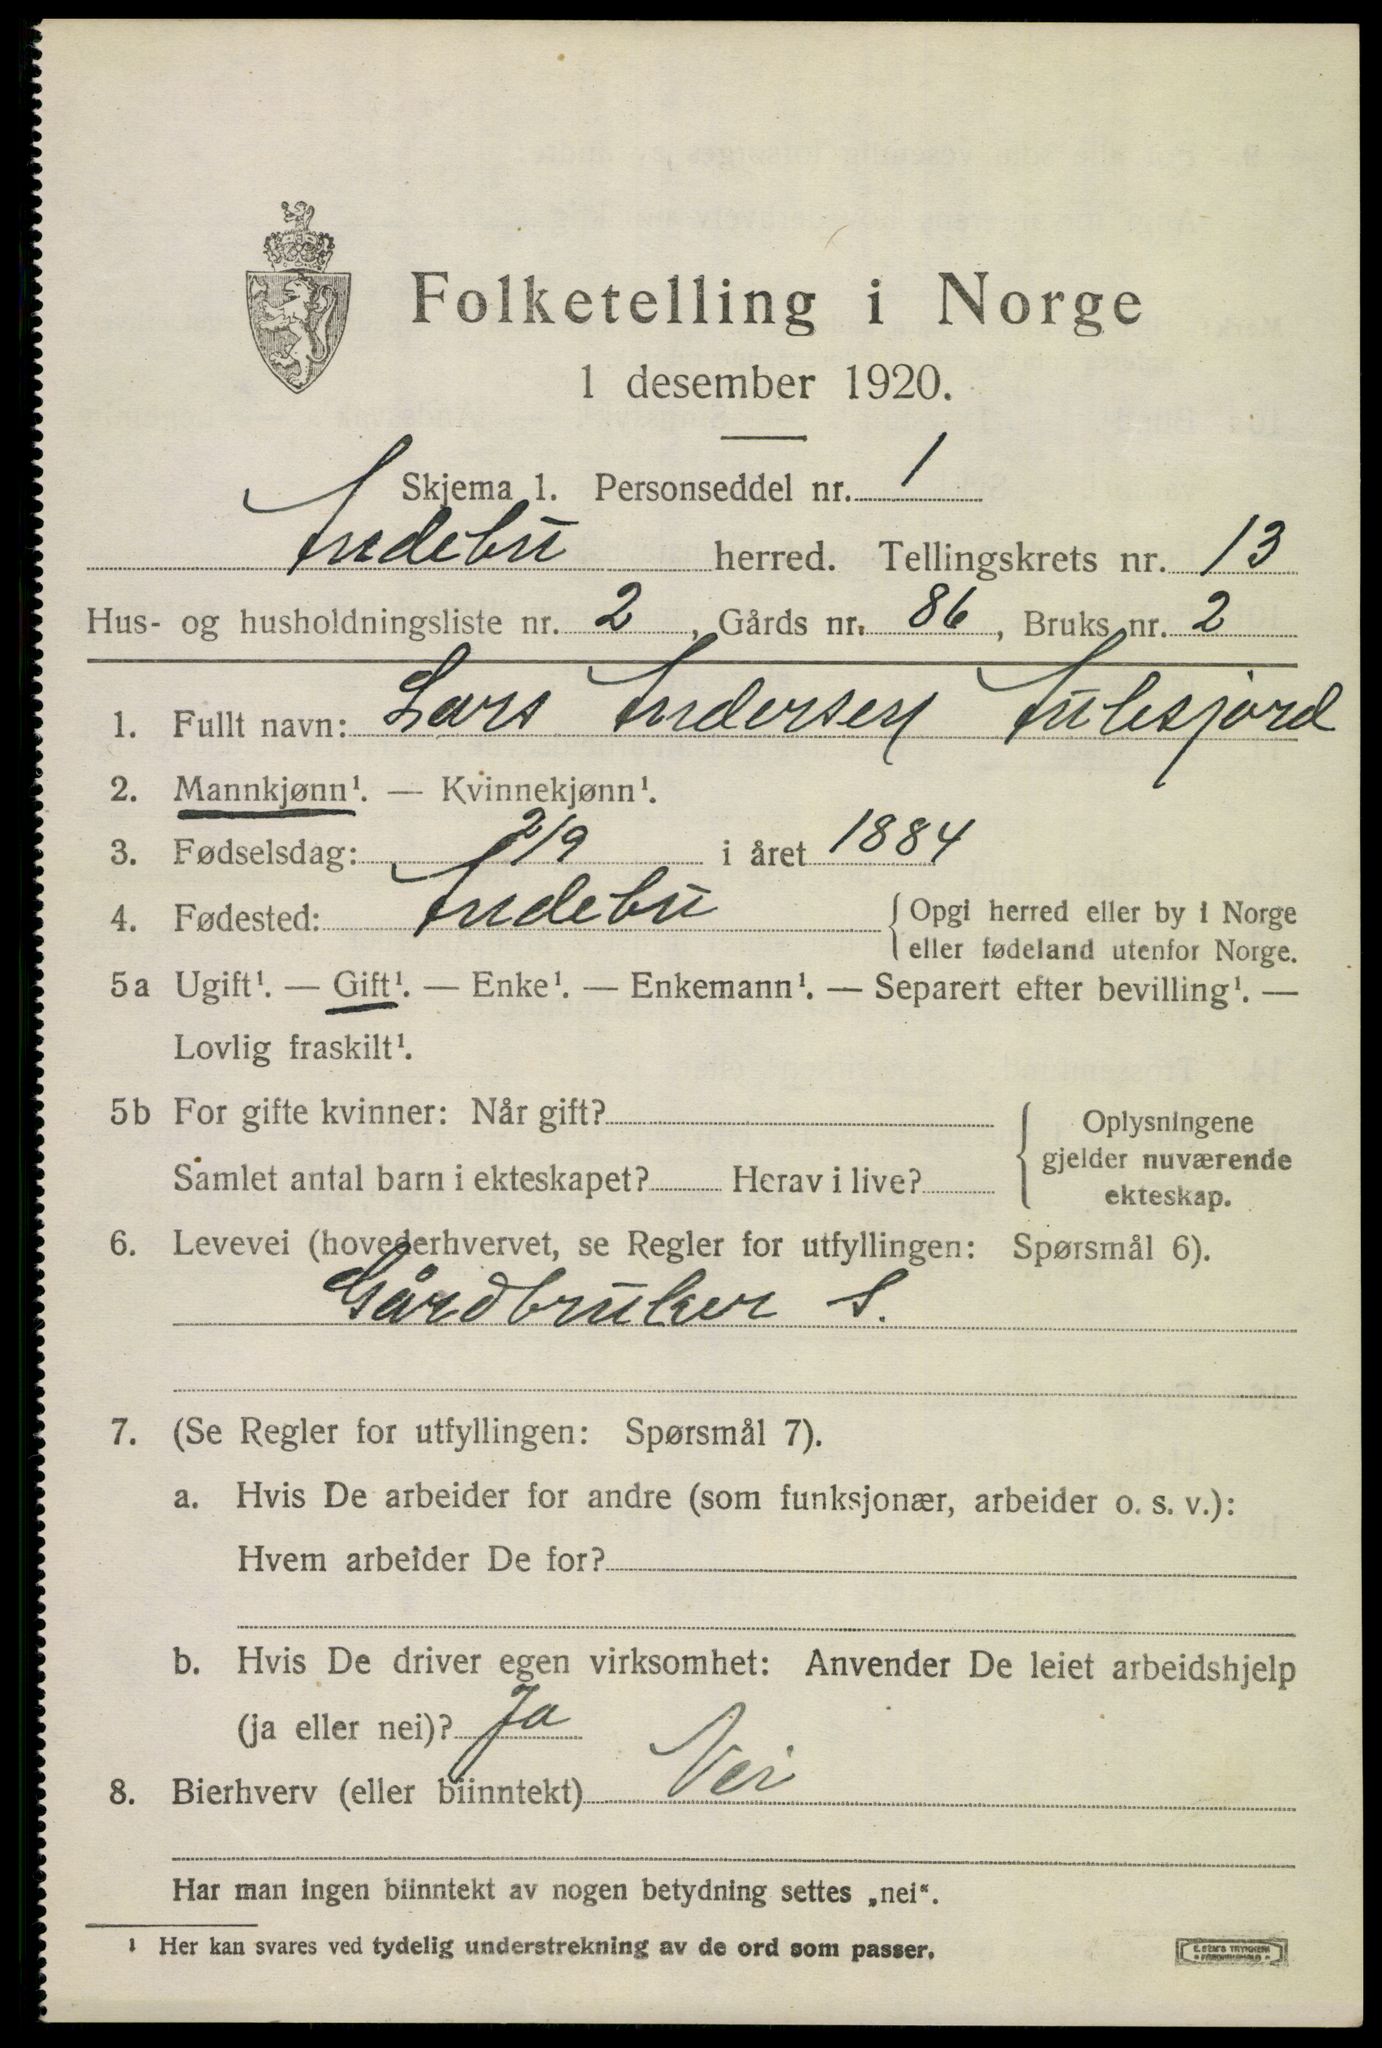 Folketelling i Norge
1 desember 1920.
Skjema 1. Personseddel nr. 1
Andebu herred. Tellingskrets nr. 13
Hus- og husholdningsliste nr. 2, Gårds nr. 86, Bruks nr. 2
1. Fullt navn: Lars Andersen Aulesjord
2. Mannkjønn¹. — Kvinnekjønn¹.
3. Fødselsdag: 2/9 i året 1884
4. Fødested: Andebu {Opgi herred eller by i Norge
eller fødeland utenfor Norge.
5a Ugift¹. — Gift¹. — Enke¹. — Enkemann¹. — Separert efter bevilling¹. —
Lovlig fraskilt¹.
5b For gifte kvinner: Når gift?
Samlet antal barn i ekteskapet? Herav i live?
Oplysningene
gjelder nuværende
ekteskap.
6. Levevei (hovederhvervet, se Regler for utfyllingen: Spørsmål 6).
Gårdbruker S.
7. (Se Regler for utfyllingen: Spørsmål 7).
a. Hvis De arbeider for andre (som funksjonær, arbeider o. s. v.):
Hvem arbeider De for?
b. Hvis De driver egen virksomhet: Anvender De leiet arbeidshjelp
(ja eller nei)? Ja
8. Bierhverv (eller biinntekt) Nei
Har man ingen biinntekt av nogen betydning settes „nei“.
¹ Her kan svares ved tydelig understrekning av de ord som passer.